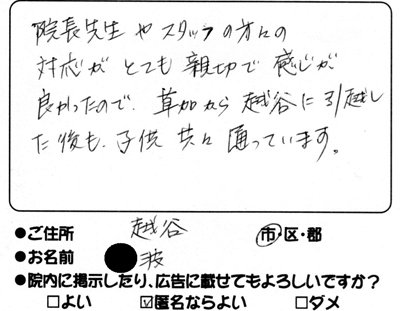 院長先生やスタッフの方々の
対応がとても親切で感じが
良かったので、草加から越谷に引越し
た後も、子供共々通っています。
●ご住所 越谷 市・区・郡
●お名前 波
●院内に掲示したり、広告に載せてもよろしいですか？
□よい ☑匿名ならよい □ダメ